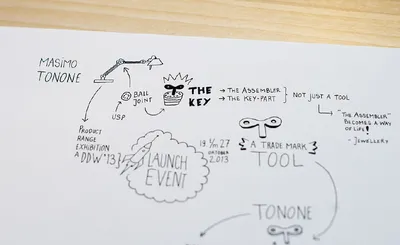 MASIMO
TONONE
BALL
JOINT
USP
THE
KEY
→ THE ASSEMBLER
→ THE KEY-PART
NOT JUST A TOOL
"THE ASSEMBLER"
BECOMES A WAY
OF LIFE!
- JEWELLERY
PRODUCT
RANGE
EXHIBITION
@ DDW '13
LAUNCH
EVENT
19 t/m 27
OKTOBER
2013
A TRADE MARK
TOOL
TONONE